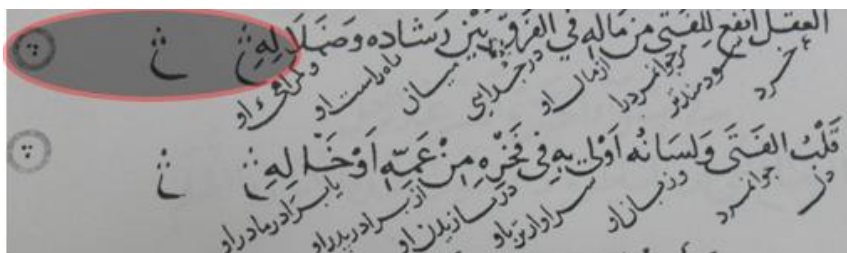 العقل انفع للفتى من ماله في الفرق بين رشاده وضلاله
خرد سودمندتر مر جوانمرد را از مال او در جدایی میان راه راست او و گمراهی او
قلب الفتى ولسانه اولى به في فخره من عمه او خاله
دل جوانمرد و زبان او سزاوارتر باو در نازیدن او از برادر پدر او یا برادر مادر او